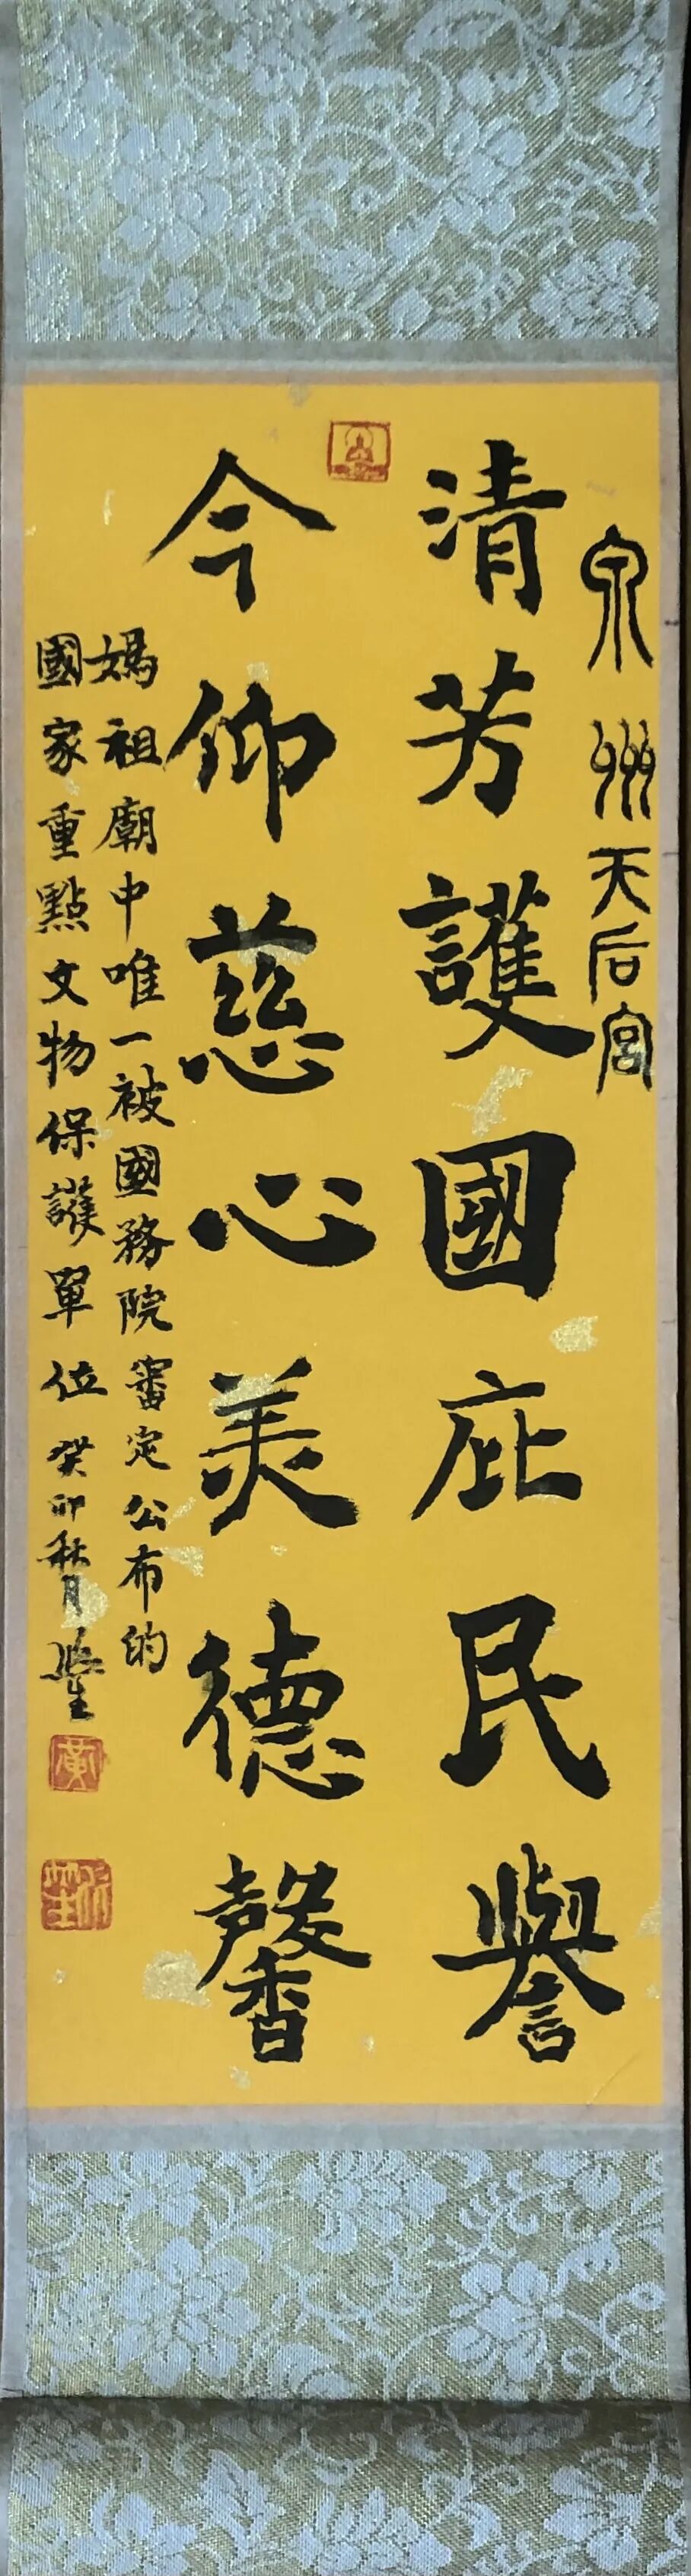 泉州天后宮
清芳護國庇民譽
今仰慈心美德馨
媽祖廟中唯一被國務院審定公布的
國家重點文物保護單位癸卯秋月
黃